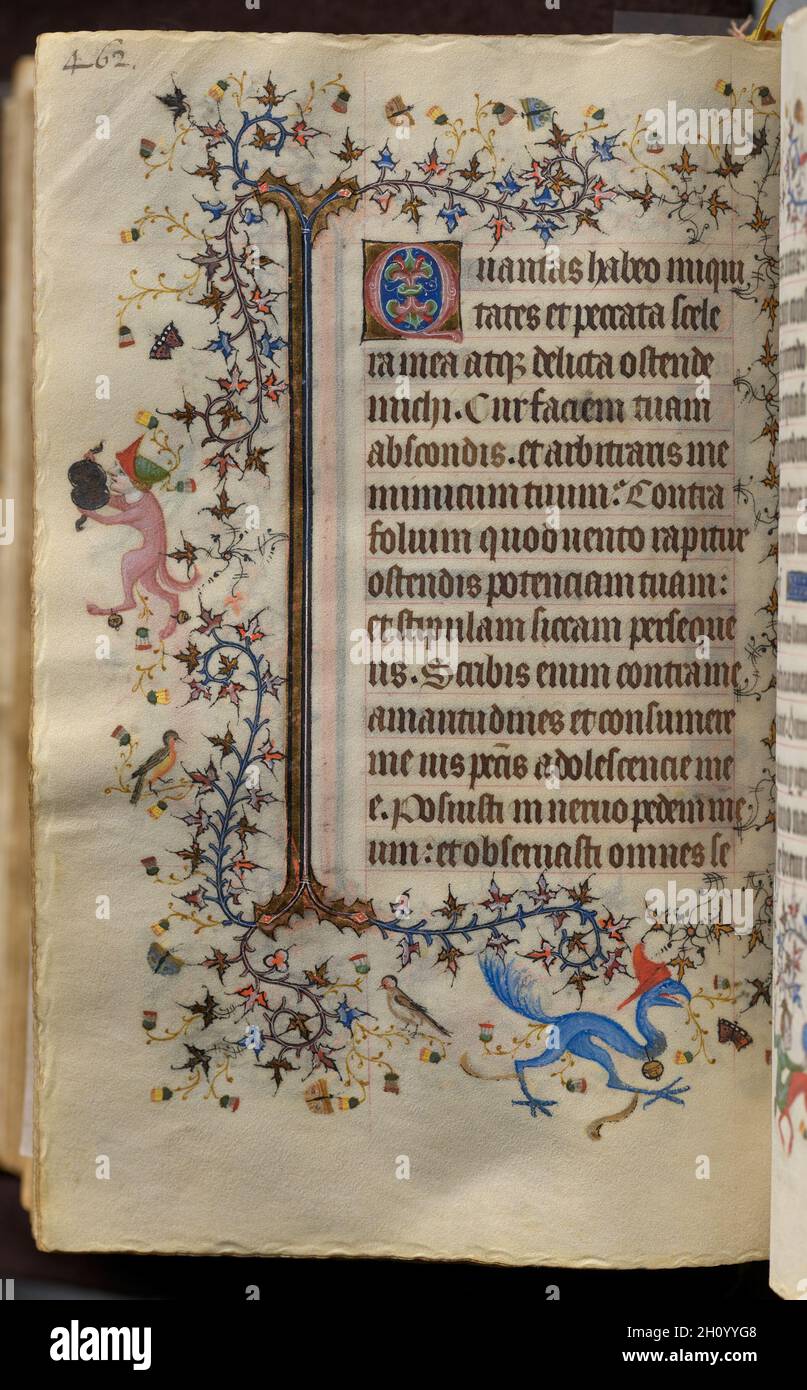 462.
Quantas habeo iniqui
tates et peccata scele
ra mea atq; delicta ostende
michi. Cur faciem tuam
abscondis. et arbitraris me
inimicum tuum: Contra
folium quod uento rapitur
ostendis potenciam tuam:
et stipulam siccam perseque
ris. Scribis enim contra me
amaritudines et consumere
me uis pccis adolescencie me
e. Posuisti in neruo pedem me
um: et obseruasti omnes se
alamy
Image ID: 2H0YYG8
www.alamy.com